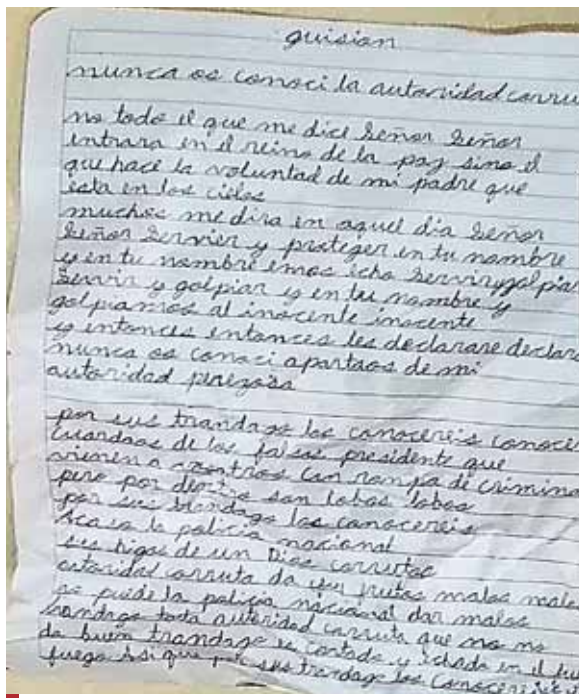 guisian
nunca os conoci la autoridad corru
no todo el que me dice Señor Señor
entrara en el reino de la paz sino el
que hace la voluntad de mi padre que
esta en los cielos
muchos me dira en aquel dia Señor
Señor Servier y proteger en tu nombre
y en tu nombre emos icho Servir y golpiar
Servir y golpiar y en tu nombre y
golpiamos al inocente inocente
y entonces entonces les declarare declara
nunca os conoci apartaos de mi
autoridad perezosa
por sus trandago los conocereis conoce
Cuardaos de los falsas presidente que
vienen a con rompa de crimina
pero por dentro son lobos lobos
por sus los conocereis
la policia nacional
sus higos de un Dios corrutas
autoridad corruta da frutas malas malas
no puede la policia nacional dar malas
toda autoridad corruta que no no
da buen trandago es cortado y echado en el fue
fuego Asi que por sus trandago los conocereis